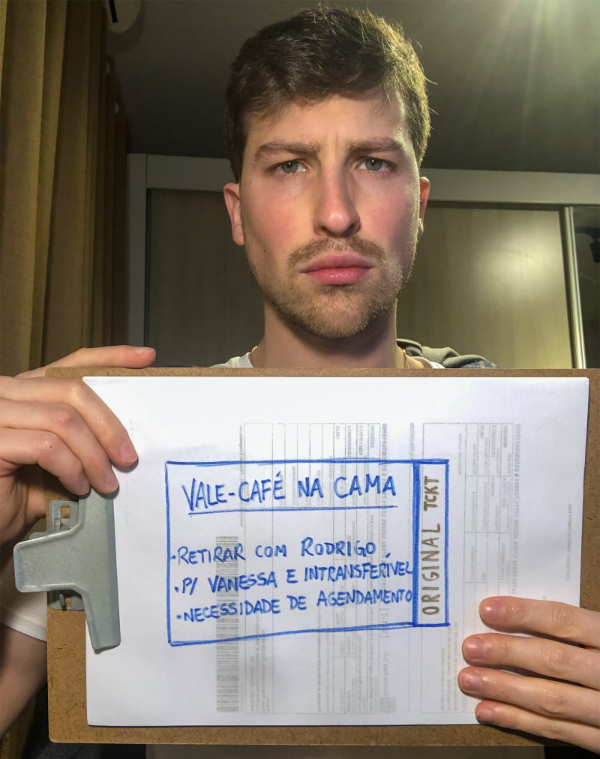 VALE-CAFÉ NA CAMA
•RETIRAR COM RODRIGO
•P/ VANESSA E INTRANSFERÍVEL
•NECESSIDADE DE AGENDAMENTO
ORIGINAL TCKT